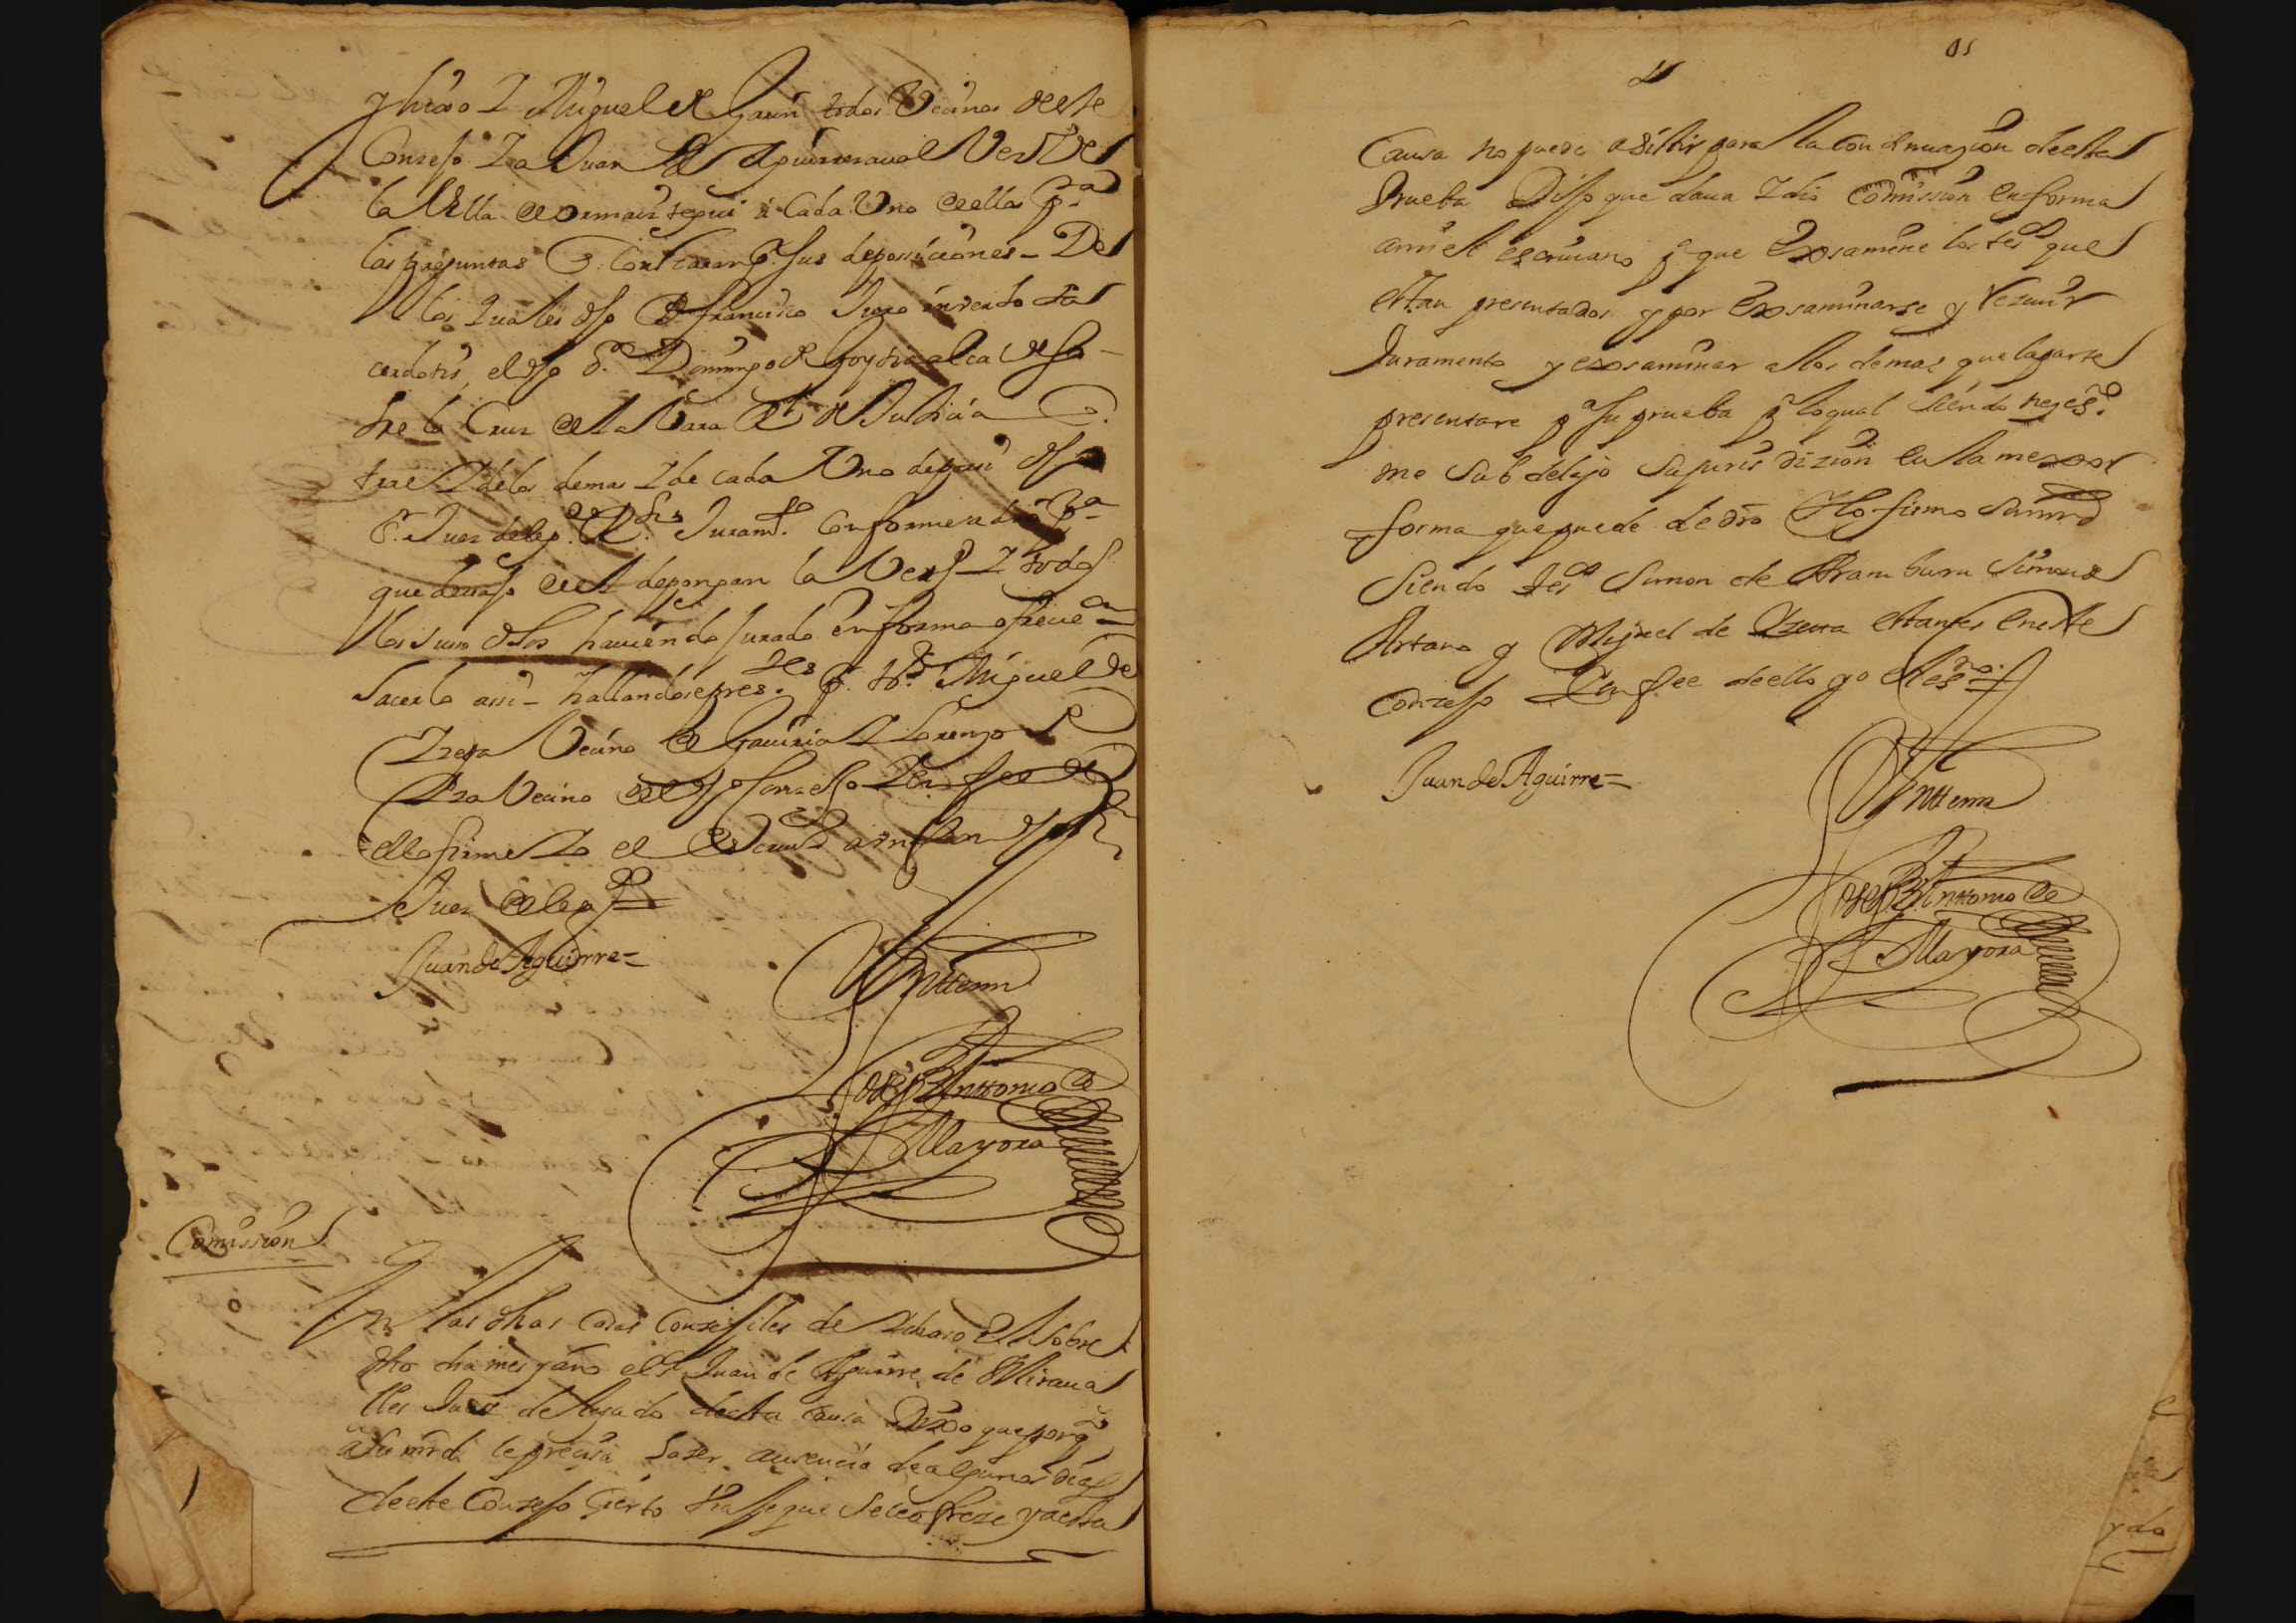 y hixo I Miguel de Garin todos Vecinos deste
Conzejo I a Juan de Aguirresaval Vez.º de
la Villa de Ormaiztegui i Cada Uno dellos p.ª
las preguntas Contraran p.r sus deposiciones – De
los quales dho D.n Francisco Juro in verbo sa
cerdotis, el dho D.n Domingo de Goytia alca so-
bre la Cruz de la Vara R.l de Justicia
trae I delos demas I de cada Uno de por si dho
S.r Juez deleg.do R.º Juram.to conforme a dro p.ª
que devajo del depongan la Verd I todos
los suso dhos haviendo jurado en forma ofrecie.on
hacerlo assi – hallandose pres.tes p.r tt.os Miguel de
Vecino de Gaviria I Lorenzo de
Vecino del dho Conzejo I en fee de
ello firme Io el Escriv.º a una con dho
Juez deleg.do
Juan de Aguirre =
Antte mi
Joseph Anttonio de
Mayora
Comission
En las dhas casas Conzejiles de Ichaso el sobre
dho dia mes y año el S.r Juan de Aguirre de Mirava
lles Juez delegado de esta causa Dixo que por q.to
a su mrd le precisa hazer ausencia de algunos dias
de este Conzejo cierto que se le ofreze y a esta
05
Causa no puede asistir para la continuazion de esta
Prueba Dijo que dava I dio comission en forma
a mi el escrivano p.ª que Exsamine los tes.os que
estan presentados y por Exsaminarse y Rezivir
Juramento y exsaminar a los demas que la parte
presentare p.ª su prueba p.ª lo qual siendo nezes.º
me subdelejo su jurisdizion en la mexor
forma que puede de dro I lo firmo su mrd
Siendo tes.os Simon de Aramburu Simon de
Artano y Miguel de estantes en este
Conzejo I en fee de ello yo el es.no
Juan de Aguirre =
Antte mi
Joseph Anttonio de
Mayora